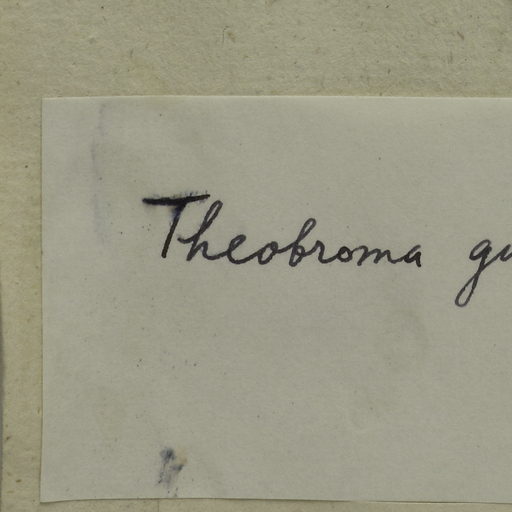 Theobroma gu